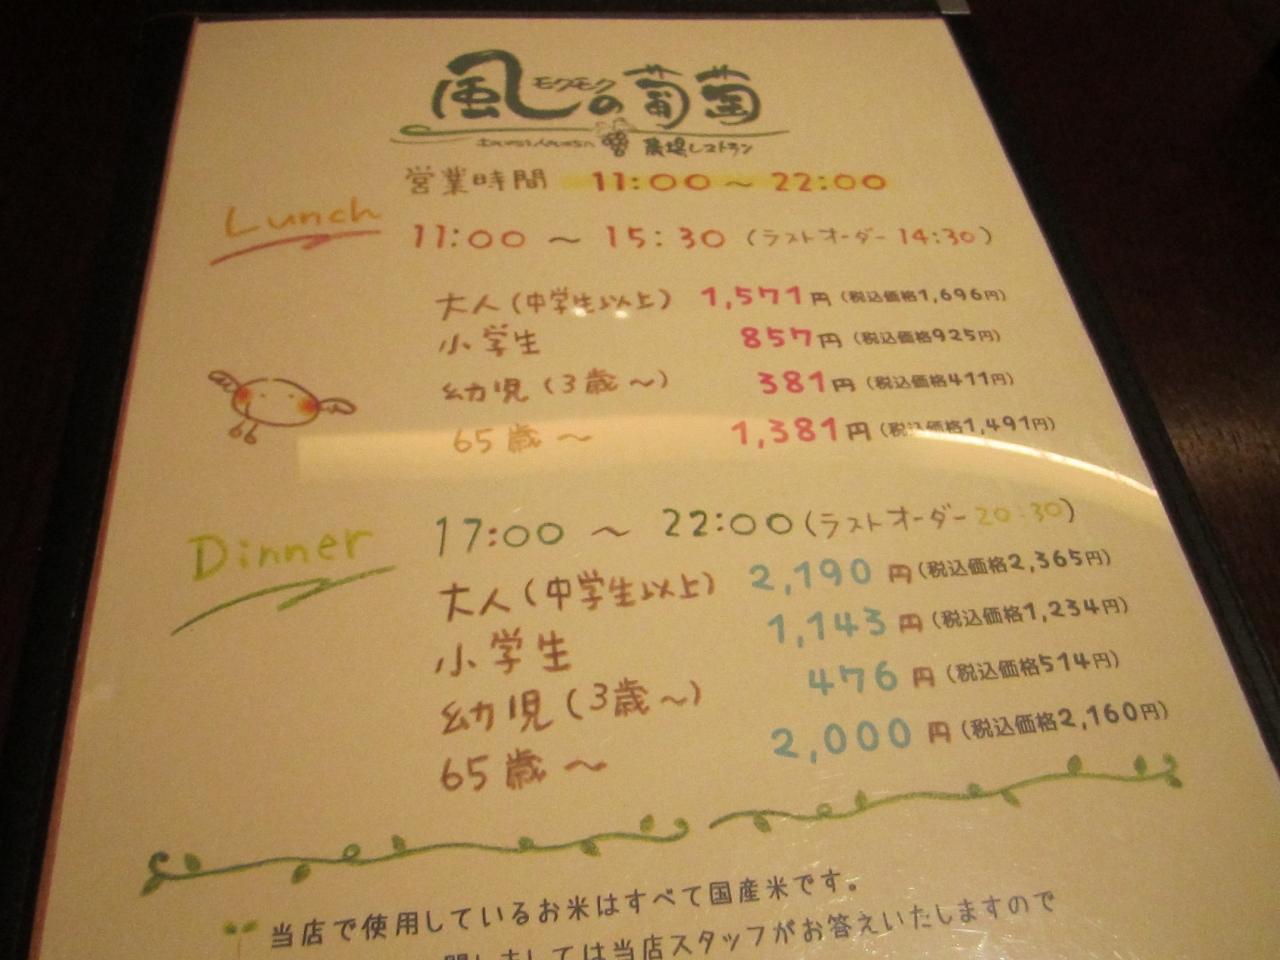 風の葡萄
モクモク
農場レストラン
営業時間 11:00 ~ 22:00
Lunch
11:00 ~ 15:30 (ラストオーダー 14:30)
大人(中学生以上) 1,571円(税込価格1,696円)
小学生 857円(税込価格925円)
幼児(3歳~) 381円(税込価格411円)
65歳~ 1,381円(税込価格1,491円)
Dinner
17:00 ~ 22:00(ラストオーダー 20:30)
大人(中学生以上) 2,190円(税込価格2,365円)
小学生 1,143円(税込価格1,234円)
幼児(3歳~) 476円(税込価格514円)
65歳~ 2,000円(税込価格2,160円)
当店で使用しているお米はすべて国産米です。
しましては当店スタッフがお答えいたしますので